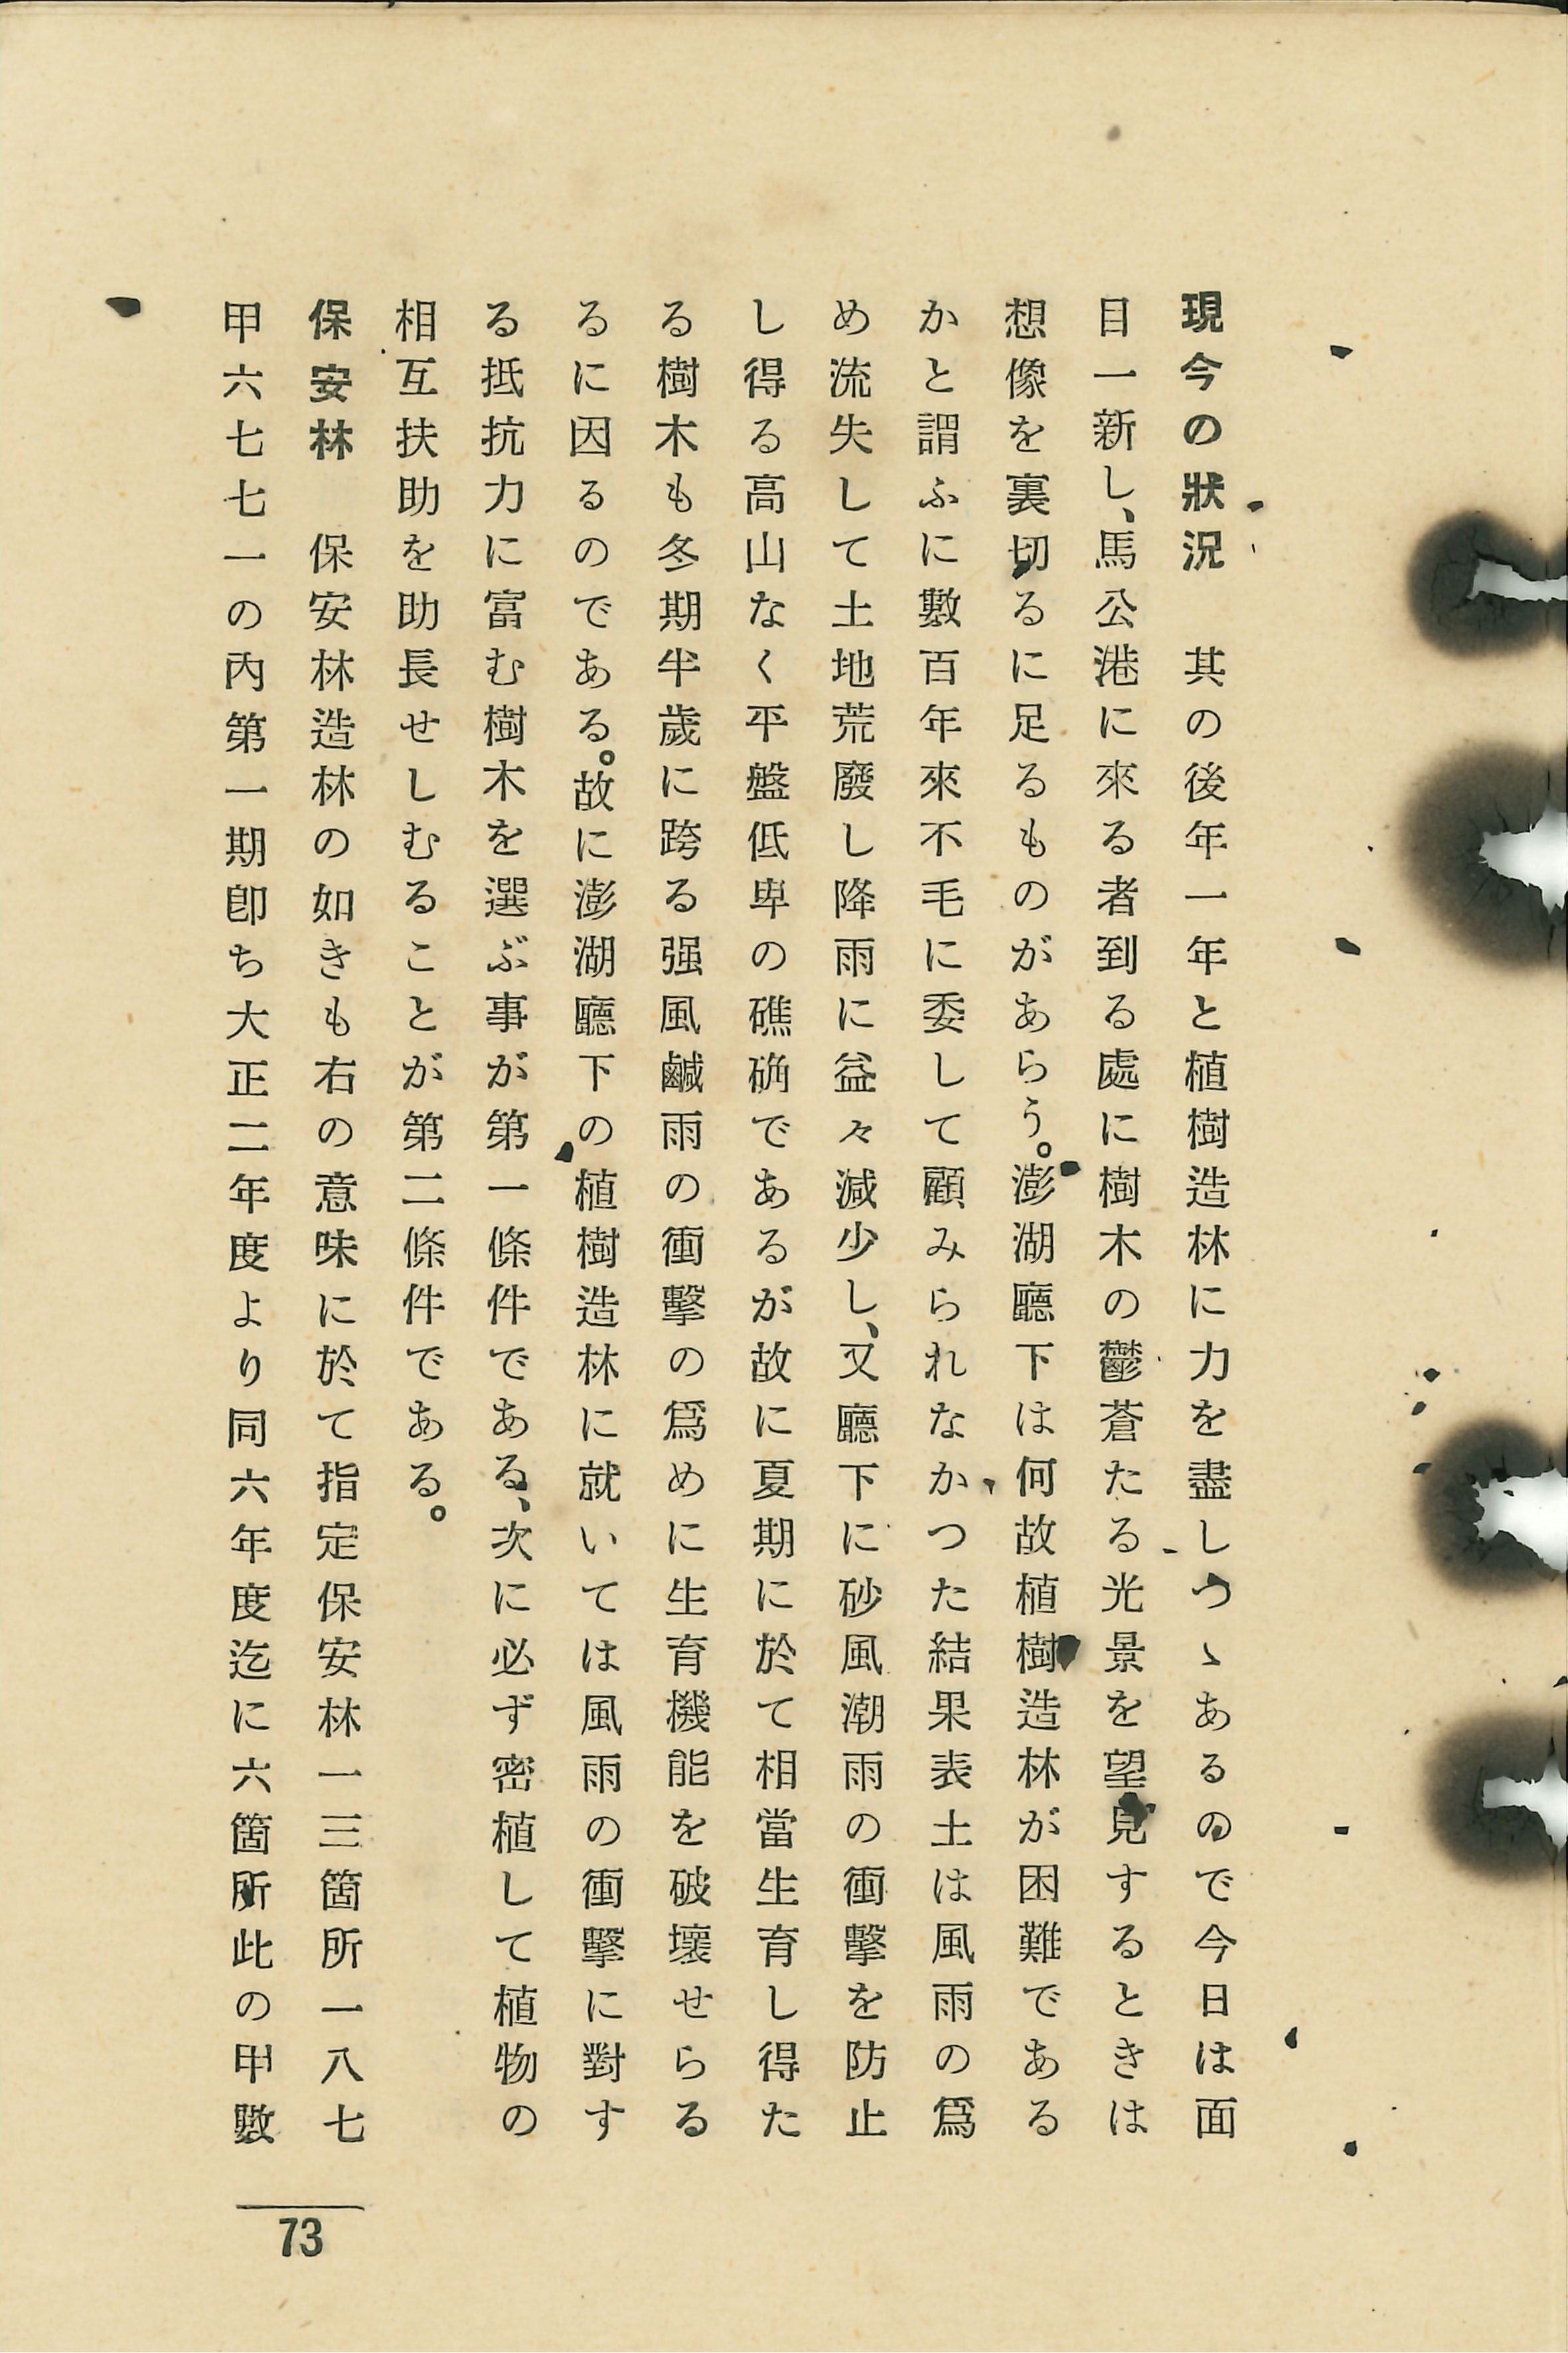 現今の狀況　其の後年一年と植樹造林に力を盡しつゝあるので今日は面
目一新し、馬公港に來る者到る處に樹木の鬱蒼たる光景を望見するときは
想像を裏切るに足るものがあらう。澎湖廳下は何故植樹造林が困難である
かと謂ふに數百年來不毛に委して顧みられなかつた結果表土は風雨の爲
め流失して土地荒廢し降雨に益々減少し、又廳下に砂風潮雨の衝擊を防止
し得る高山なく平盤低卑の礁确であるが故に夏期に於て相當生育し得た
る樹木も冬期半歲に跨る强風鹹雨の衝擊の爲めに生育機能を破壞せらる
るに因るのである。故に澎湖廳下の植樹造林に就いては風雨の衝擊に對す
る抵抗力に富む樹木を選ぶ事が第一條件である、次に必ず密植して植物の
相互扶助を助長せしむることが第二條件である。
保安林　保安林造林の如きも右の意味に於て指定保安林一三箇所一八七
甲六七七一の內第一期卽ち大正二年度より同六年度迄に六箇所此の甲數
73